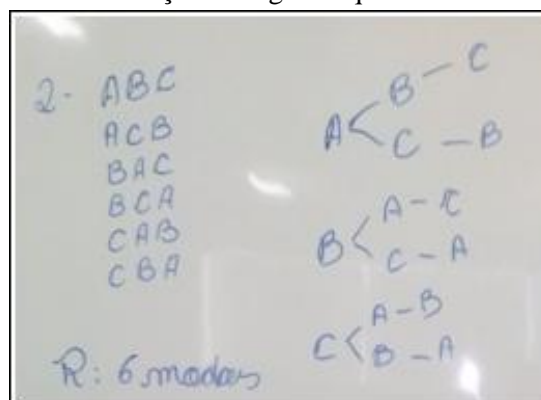 2- ABC
ACB
BAC
BCA
CAB
CBA
R: 6 modos
B — C
A <
C — B
A — C
B <
C — A
A — B
C <
B — A